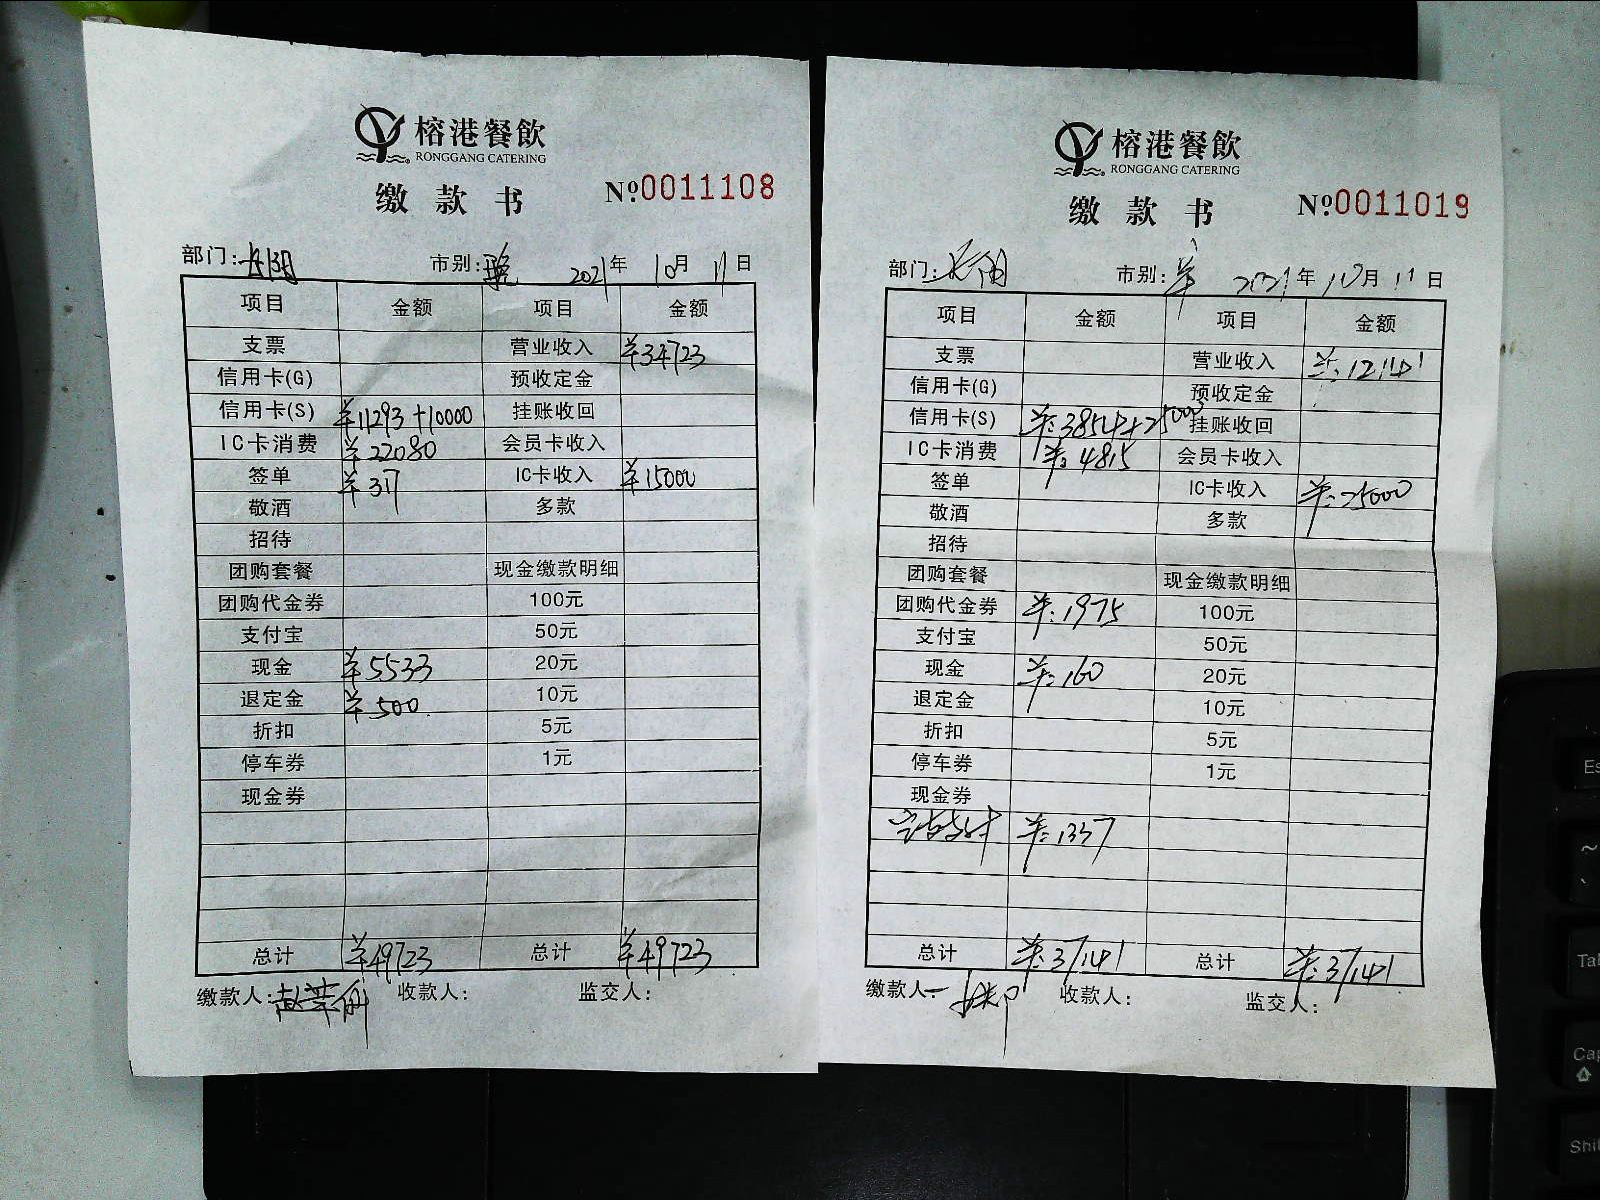 榕港餐飲
RONGGANG CATERING
缴款书 №0011108
部门: 市别:晚 2021年 10月 11日
项目 金额 项目 金额
支票 营业收入 ¥34723
信用卡(G) 预收定金
信用卡(S) ¥11293+10000 挂账收回
IC卡消费 ¥22080 会员卡收入
签单 ¥317 IC卡收入 ¥15000
敬酒 多款
招待
团购套餐 现金缴款明细
团购代金券 100元
支付宝 50元
现金 ¥5533 20元
退定金 ¥500 10元
折扣 5元
停车券 1元
现金券
总计 ¥49723 总计 ¥49723
缴款人: 收款人: 监交人:
榕港餐飲
RONGGANG CATERING
缴款书 №0011019
部门: 市别: 2021年 10月 11日
项目 金额 项目 金额
支票 营业收入 ¥:12141
信用卡(G) 预收定金
信用卡(S) ¥:3854+25000 挂账收回
IC卡消费 ¥:4815 会员卡收入
签单 IC卡收入 ¥:25000
敬酒 多款
招待
团购套餐 现金缴款明细
团购代金券 ¥:1975 100元
支付宝 50元
现金 ¥:160 20元
退定金 10元
折扣 5元
停车券 1元
现金券
¥:1337
总计 ¥:37141 总计 ¥:37141
缴款人: 收款人: 监交人: